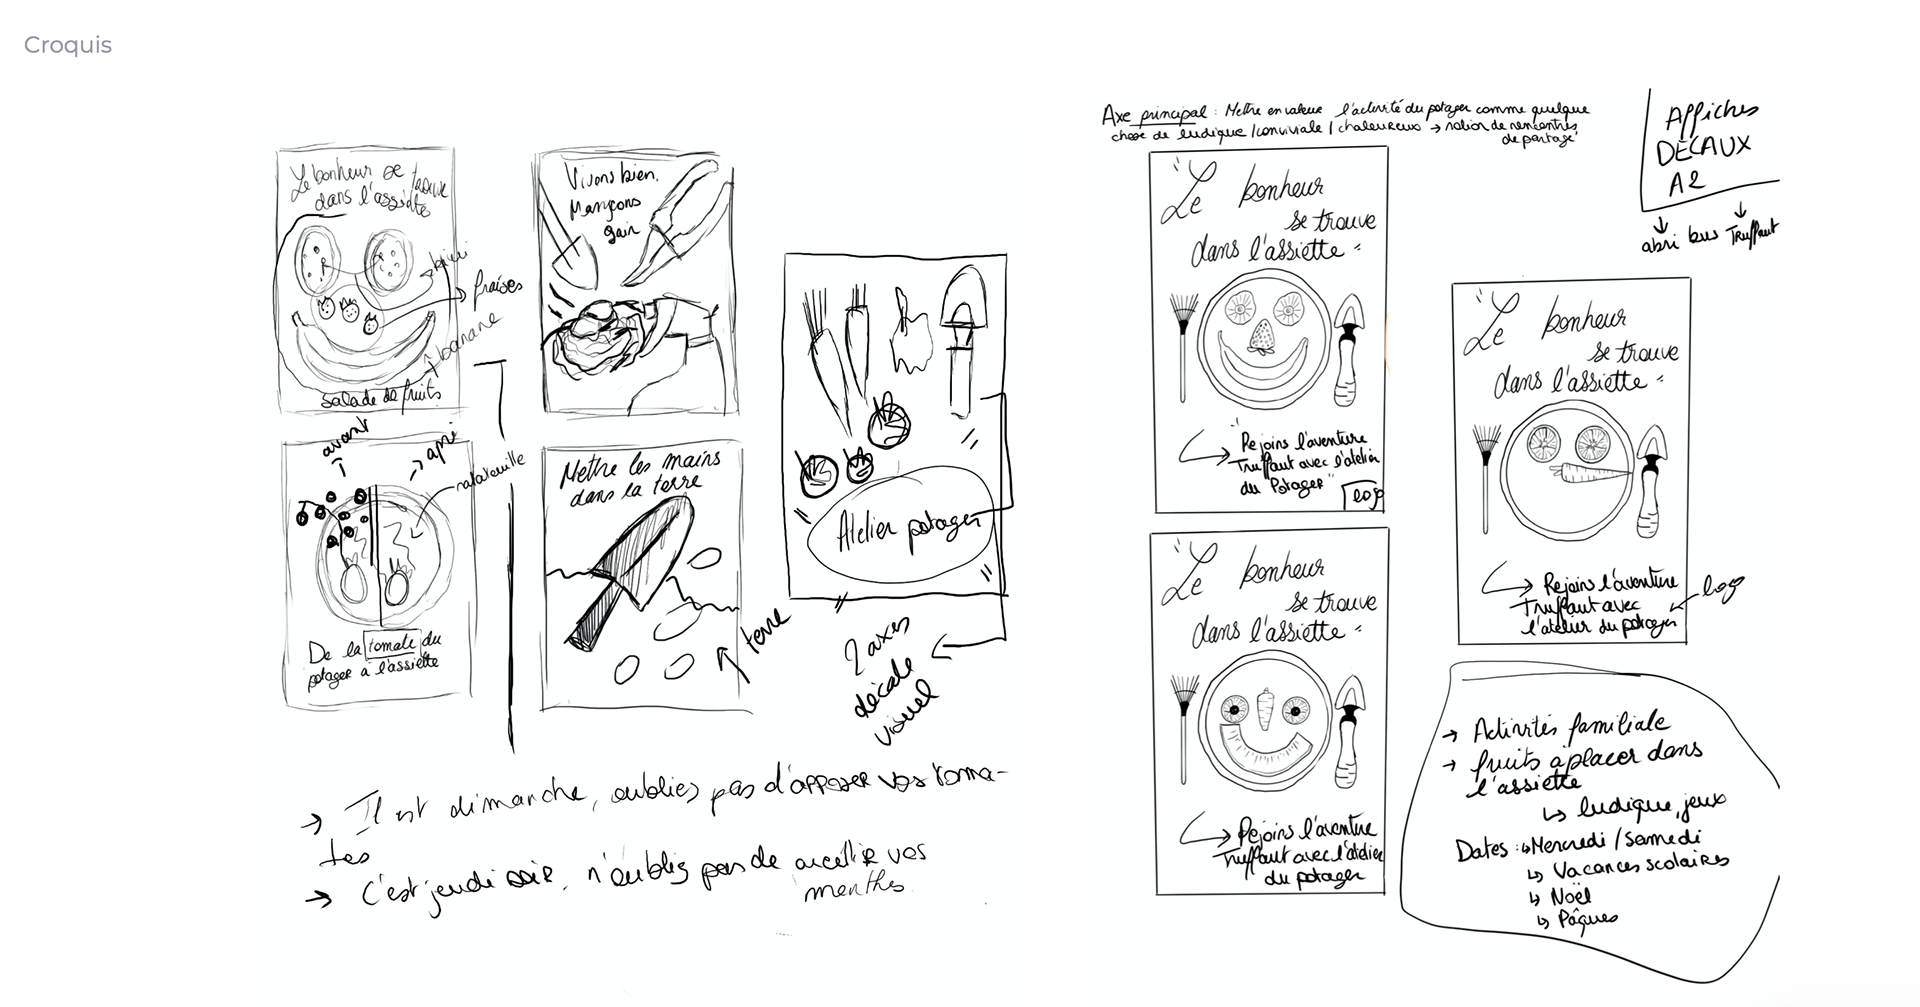 Croquis
Le bonheur se trouve
dans l'assiette
kiwi
fraises
banane
salade de fruits
Vivons bien,
Mangeons
sain
avant
apr
ratatouille
De la tomate du
potager à l'assiette
Mettre les mains
dans la terre
terre
Atelier potager
2 axes
décalé
visuel
→ Il est dimanche, oublies pas d'apposer vos toma-
tes
→ C'est jeudi soir, n'oubliez pas de
vos
menthes.
Axe principal : Mettre en valeur l'activité du potager comme quelque
chose de ludique / conviviale / chaleureux → notion de rencontres
de partage
AFFiches
DECAUX
A2
abri bus Truffaut
"Le bonheur
se trouve
dans l'assiette"
Rejoins l'aventure
Truffaut avec l'atelier
du Potager"
logo
"Le bonheur
se trouve
dans l'assiette"
Rejoins l'aventure
Truffaut avec
l'atelier du potager
logo
"Le bonheur
se trouve
dans l'assiette"
Rejoins l'aventure
Truffaut avec l'atelier
du potager
→ Activités familiale
→ fruits à placer dans
l'assiette
↳ ludique, jeux
Dates : ↳ Mercredi / Samedi
↳ Vacances scolaires
↳ Noël
↳ Pâques